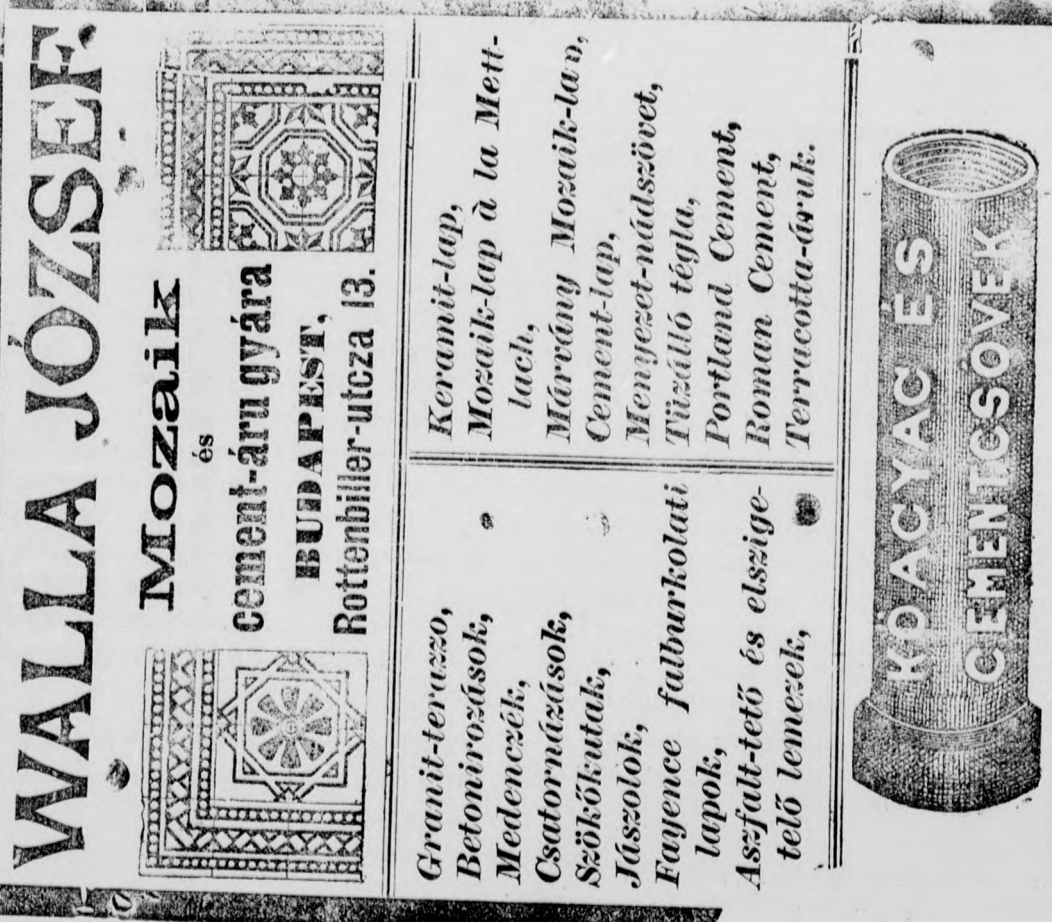 WALLA JÓZSEF
Mozaik
és
cement-áru gyára
BUDAPEST,
Rottenbiller-utcza 13.
Granit-terazzo,
Betonirozások,
Medenczék,
Csatornázások,
Szökőkutak,
Jászolok,
Fayence falburkolati
lapok,
Aszfalt-tető és elszige-
telő lemezek,
Keramit-lap,
Mozaik-lap à la Mett-
lach,
Márvány Mozaik-lap,
Cement-lap,
Menyezet-nádszövet,
Tűzálló tégla,
Portland Cement,
Roman Cement,
Terracotta-áruk.
KŐAGYAG ÉS
CEMENTCSÖVEK